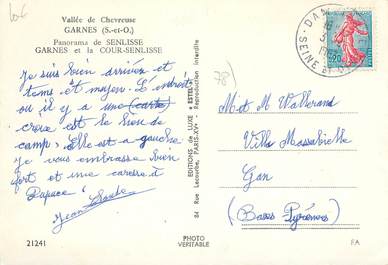 Vallée de Chevreuse
GARNES (S.-et-O.)
Panorama de SENLISSE
GARNES et la COUR-SENLISSE
Je suis bien arrivée et
tems et moyen. L'endroit
où il y a une (carte)
croix est le lieu de
camp. Elle est a gauche
Je vous embrasse bien
fort et une caresse à
Papace
Jean Claude
21241
PHOTO
VÉRITABLE
EDITIONS de LUXE « ESTEL »
84 Rue Lecourbe, PARIS-XVe - Reproduction interdite
78)
DAM
SEINE ET O
0,20
M et M Walherand
Villa Massabielle
Gan
(Basses Pyrénées)
FA